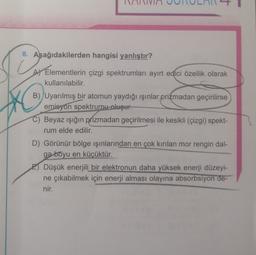 8. Aşağıdakilerden hangisi yanlıştır?
A) Elementlerin çizgi spektrumları ayırt edici özellik olarak
kullanılabilir.
B) Uyarılmış bir atomun yaydığı ışınlar prizmadan geçirilirse
emisyon spektrumu oluşur.
C) Beyaz ışığın prizmadan geçirilmesi ile kesikli (çizgi) spekt-
rum elde edilir.
D) Görünür bölge ışınlarından en çok kırılan mor rengin dal-
ga boyu en küçüktür.
E) Düşük enerjili bir elektronun daha yüksek enerji düzeyi-
ne çıkabilmek için enerji alması olayına absorbsiyon de-
nir.